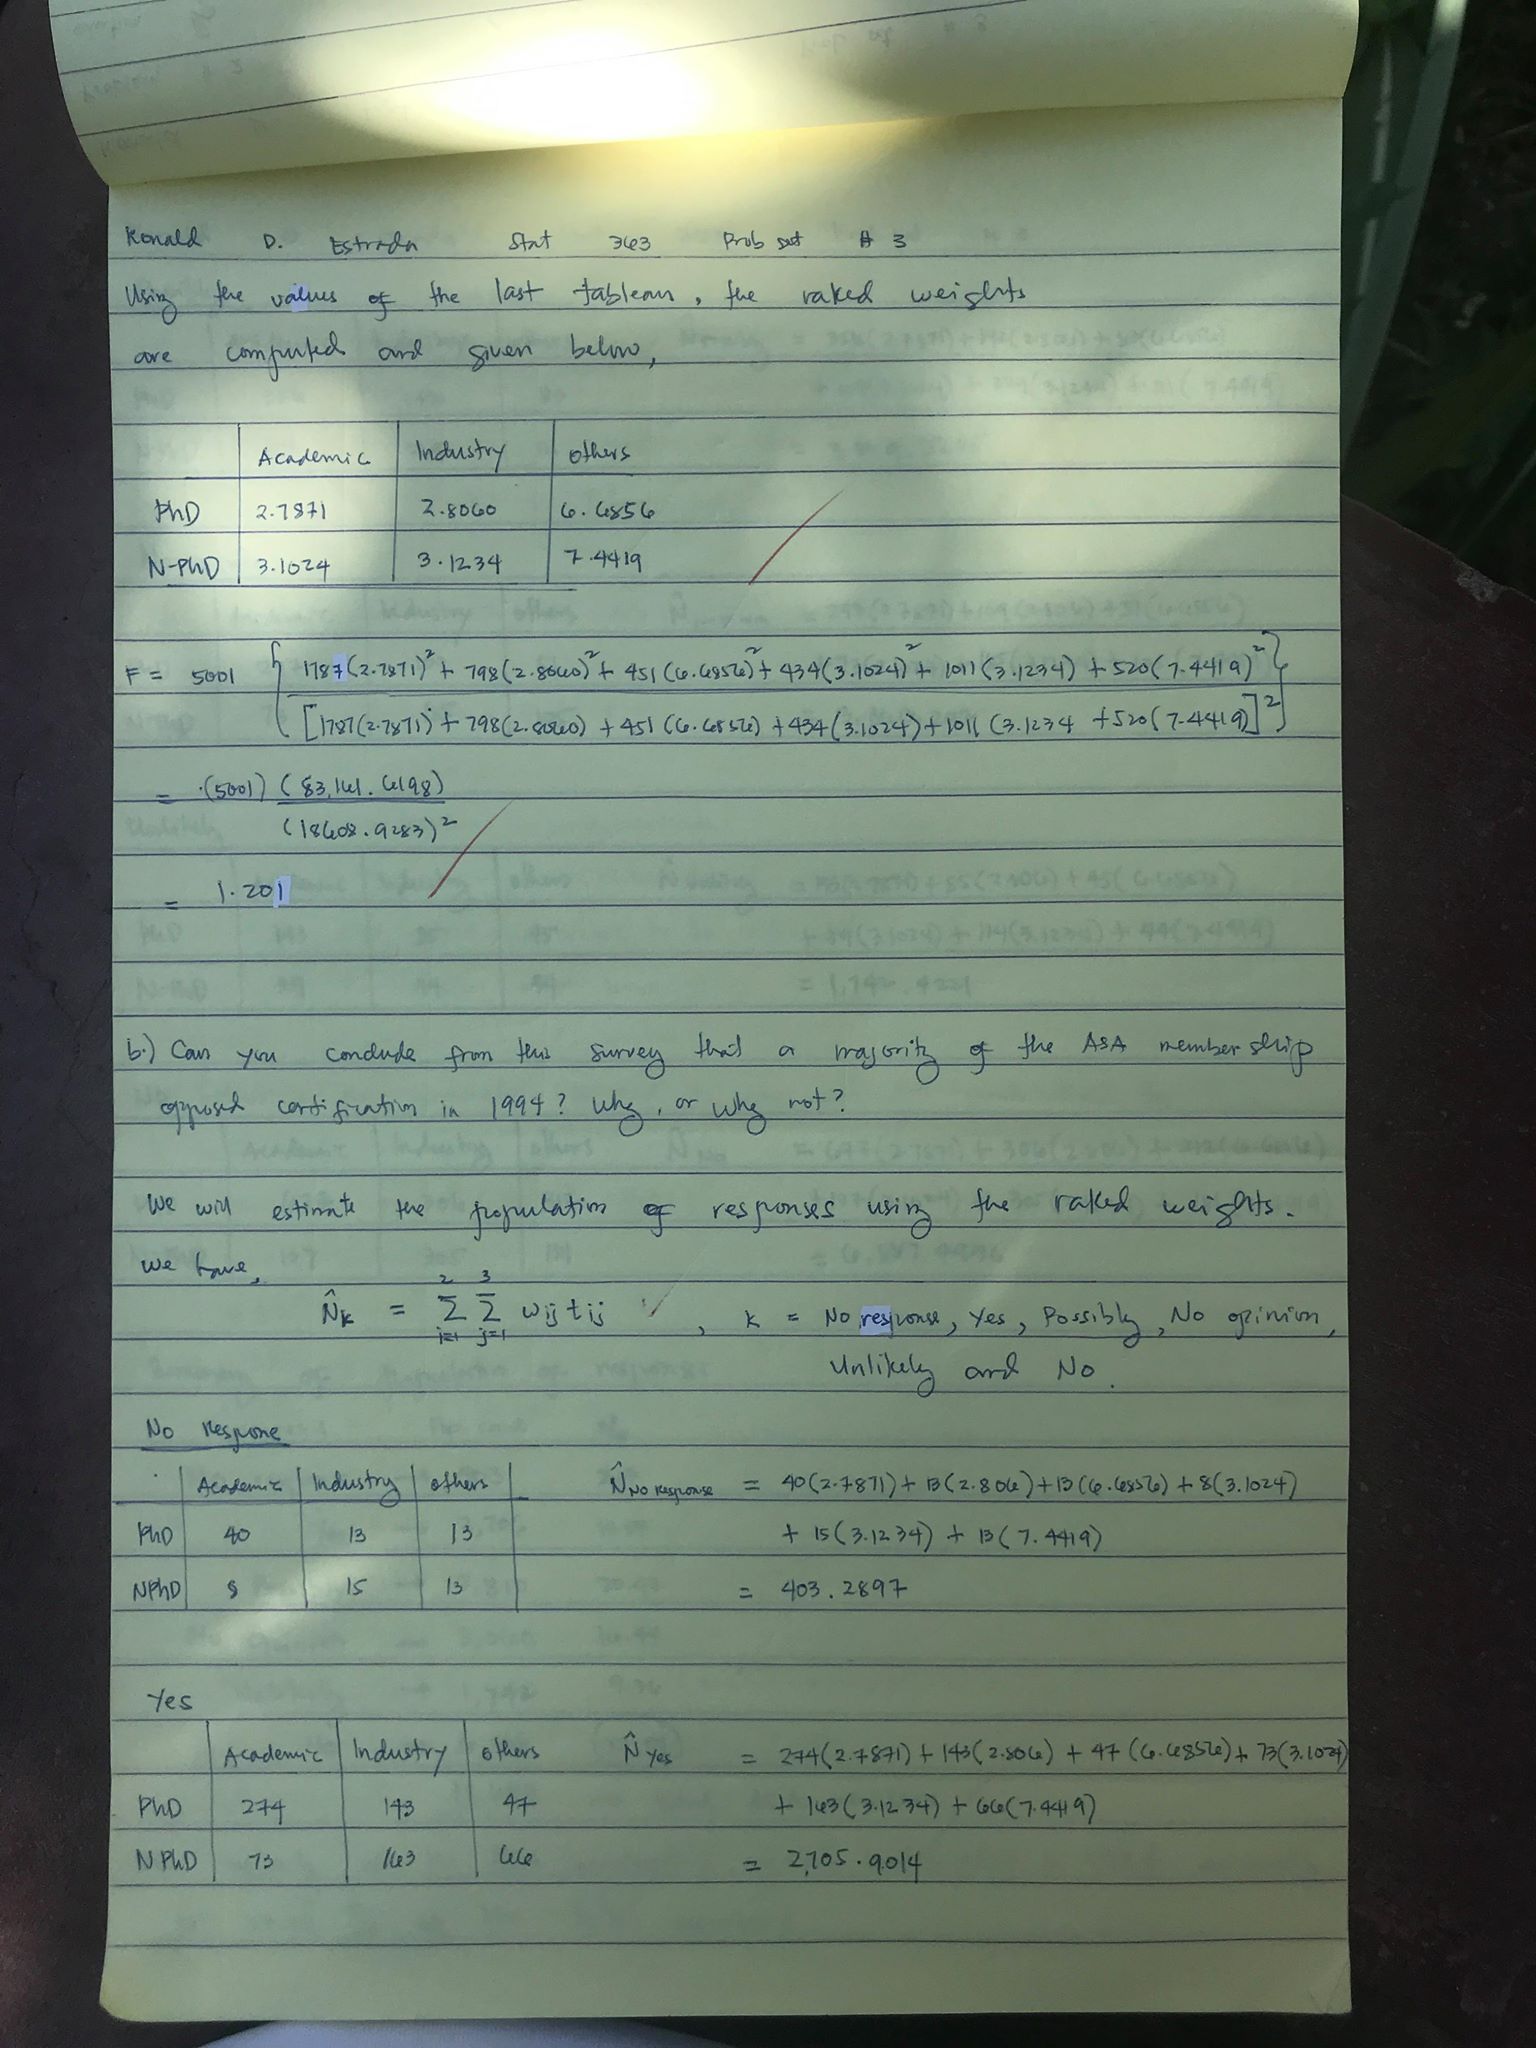 Ronald D. Estrada Stat 363 Prob set # 3
Using the values of the last tableau, the raked weights
are computed and given below,
Academic Industry Others
PhD 2.7871 2.8060 6.6856
N-PhD 3.1024 3.1234 7.4419
F = 5001 { 1787(2.7871)² + 798(2.8060)² + 451(6.6856)² + 434(3.1024)² + 1011(3.1234) + 520(7.4419)² }
[1787(2.7871) + 798(2.8060) + 451(6.6856) + 434(3.1024) + 1011(3.1234 + 520(7.4419)]²
= (5001) (83,161.6198)
(18608.9283)²
= 1.201
b.) Can you conclude from this survey that a majority of the ASA membership
opposed certification in 1994? Why, or why not?
We will estimate the population of responses using the raked weights.
We have,
N̂k = Σ(i=1 to 2) Σ(j=1 to 3) wij tij , k = No response, Yes, Possibly, No opinion,
Unlikely and No.
No Respone
Academic Industry Others N̂ No Response = 40(2.7871) + 13(2.806) + 13(6.6856) + 8(3.1024)
PhD 40 13 13 + 15(3.1234) + 13(7.4419)
NPhD 8 15 13 = 403.2897
Yes
Academic Industry Others N̂ Yes = 274(2.7871) + 143(2.806) + 47(6.6856) + 73(3.1024)
PhD 274 143 47 + 163(3.1234) + 66(7.4419)
NPhD 73 163 66 = 2,705.9014